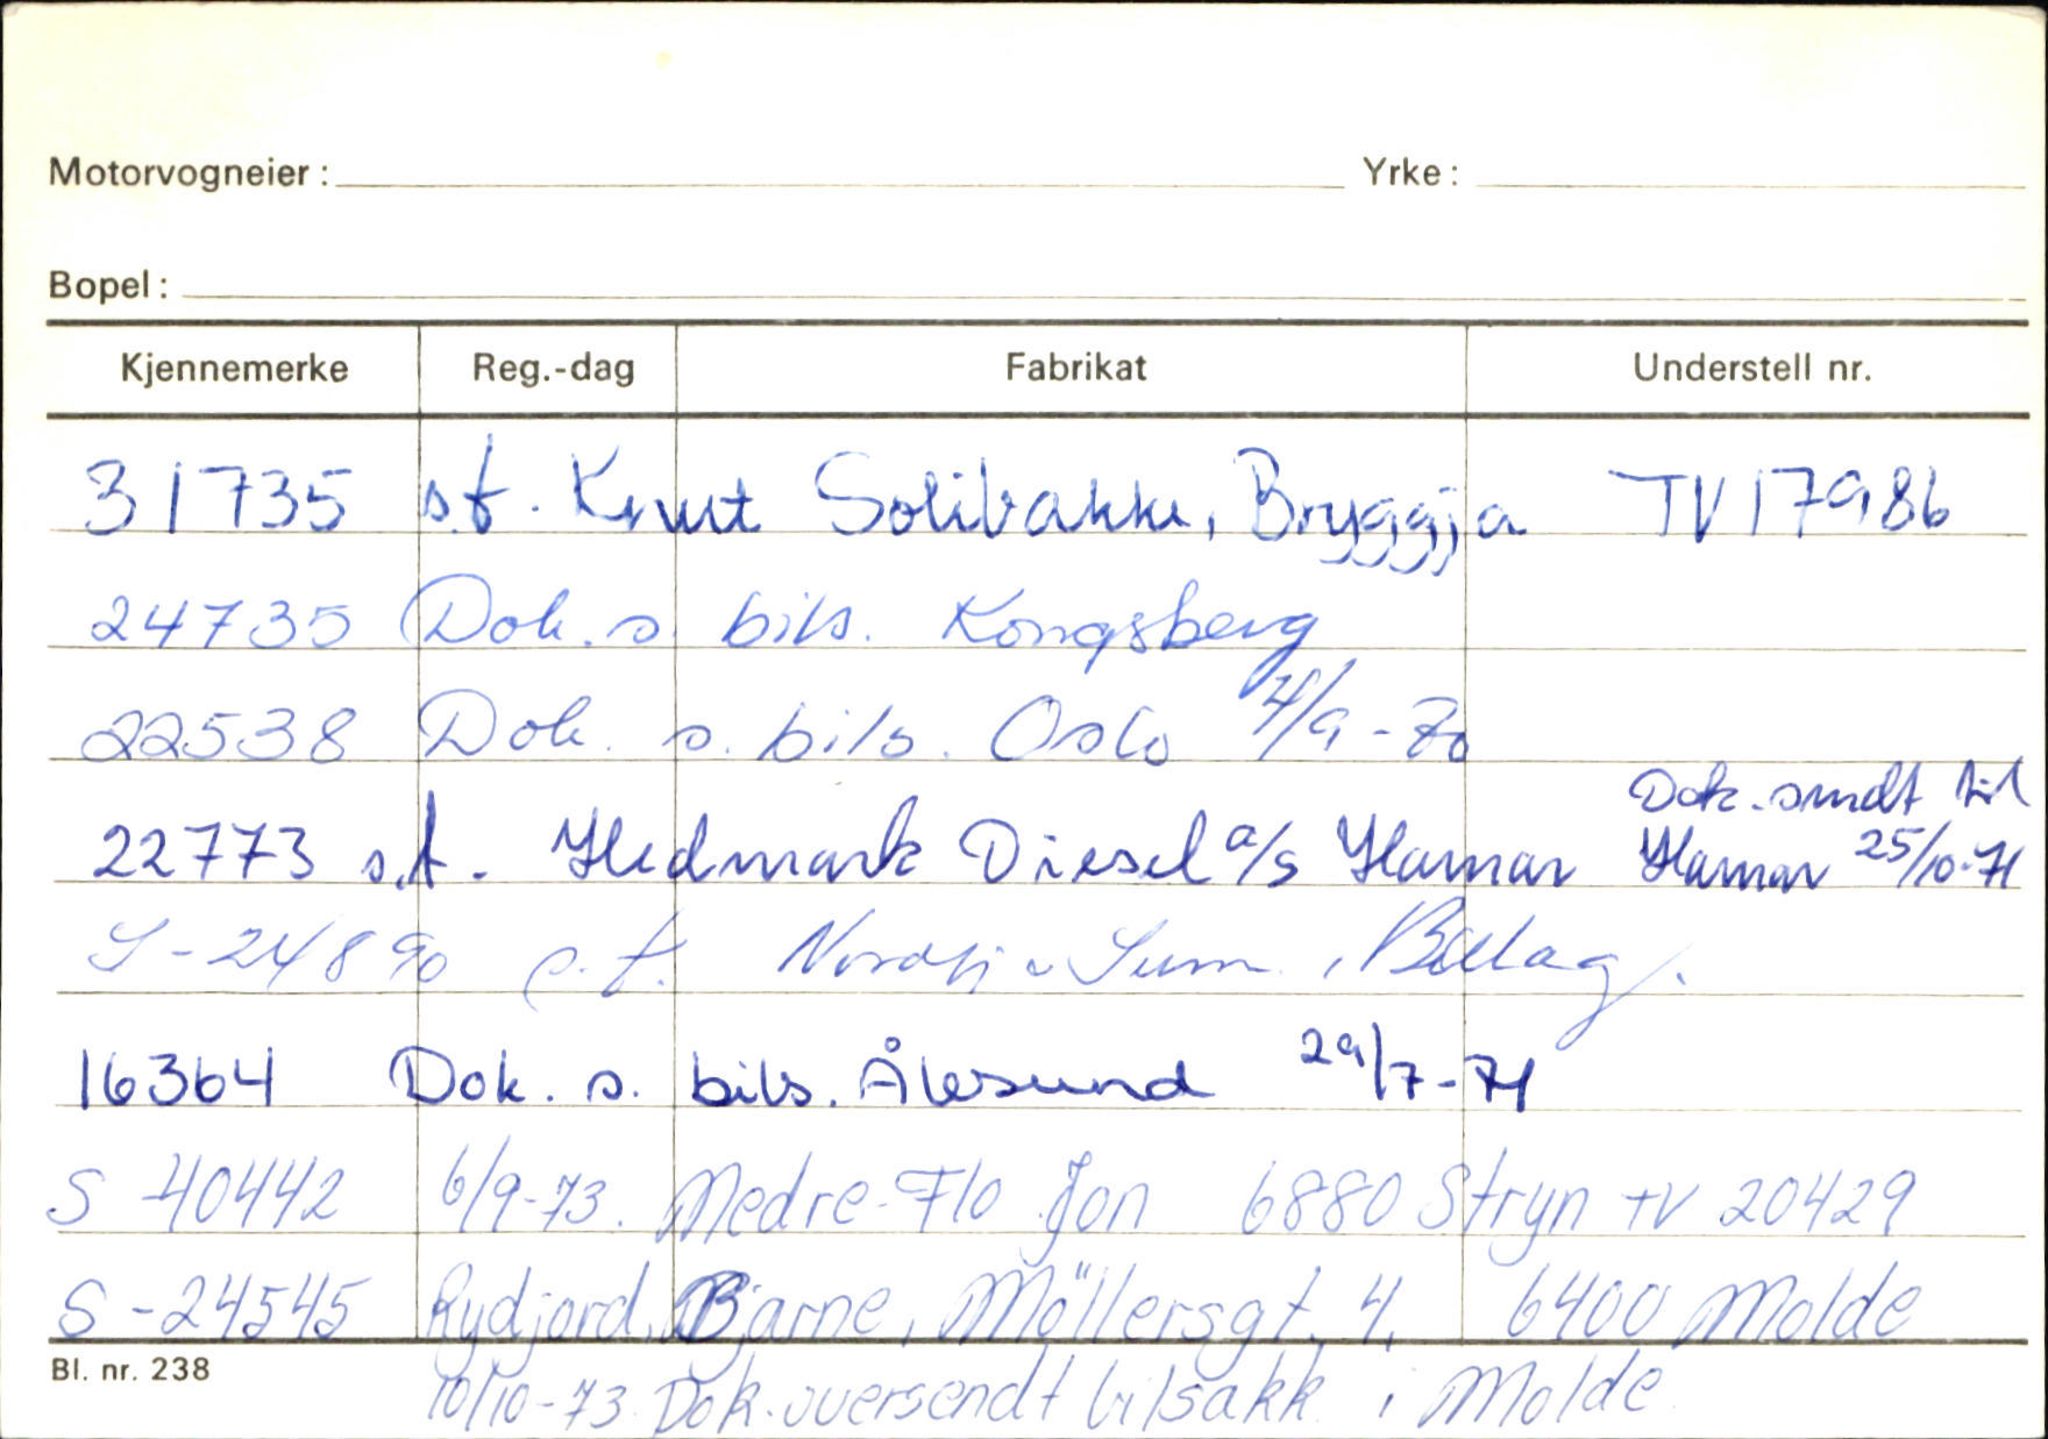 Motorvogneier: Yrke:
Bopel:
Kjennemerke Reg.-dag Fabrikat Understell nr.
31735 s.f. Knut Solibakke, Bryggja TV17986
24735 Dok. s. bils. Kongsberg
22538 Dok. s. bils. Oslo 4/9-70
Dok. sendt til
22773 s.f. Hedmark Diesel a/s Hamar Hamar 25/10-71
S-24890 s.f. Nordfj. Billag.
16364 Dok. s. bils. Ålesund 29/7-71
S-40442 6/9-73. Nedre-Flo Jon 6880 Stryn TV 20429
S-24545 Rydjord, Bjarne, Möllersgt. 4, 6400 Molde
Bl. nr. 238
10/10-73. Dok. oversendt bilsakk. i Molde